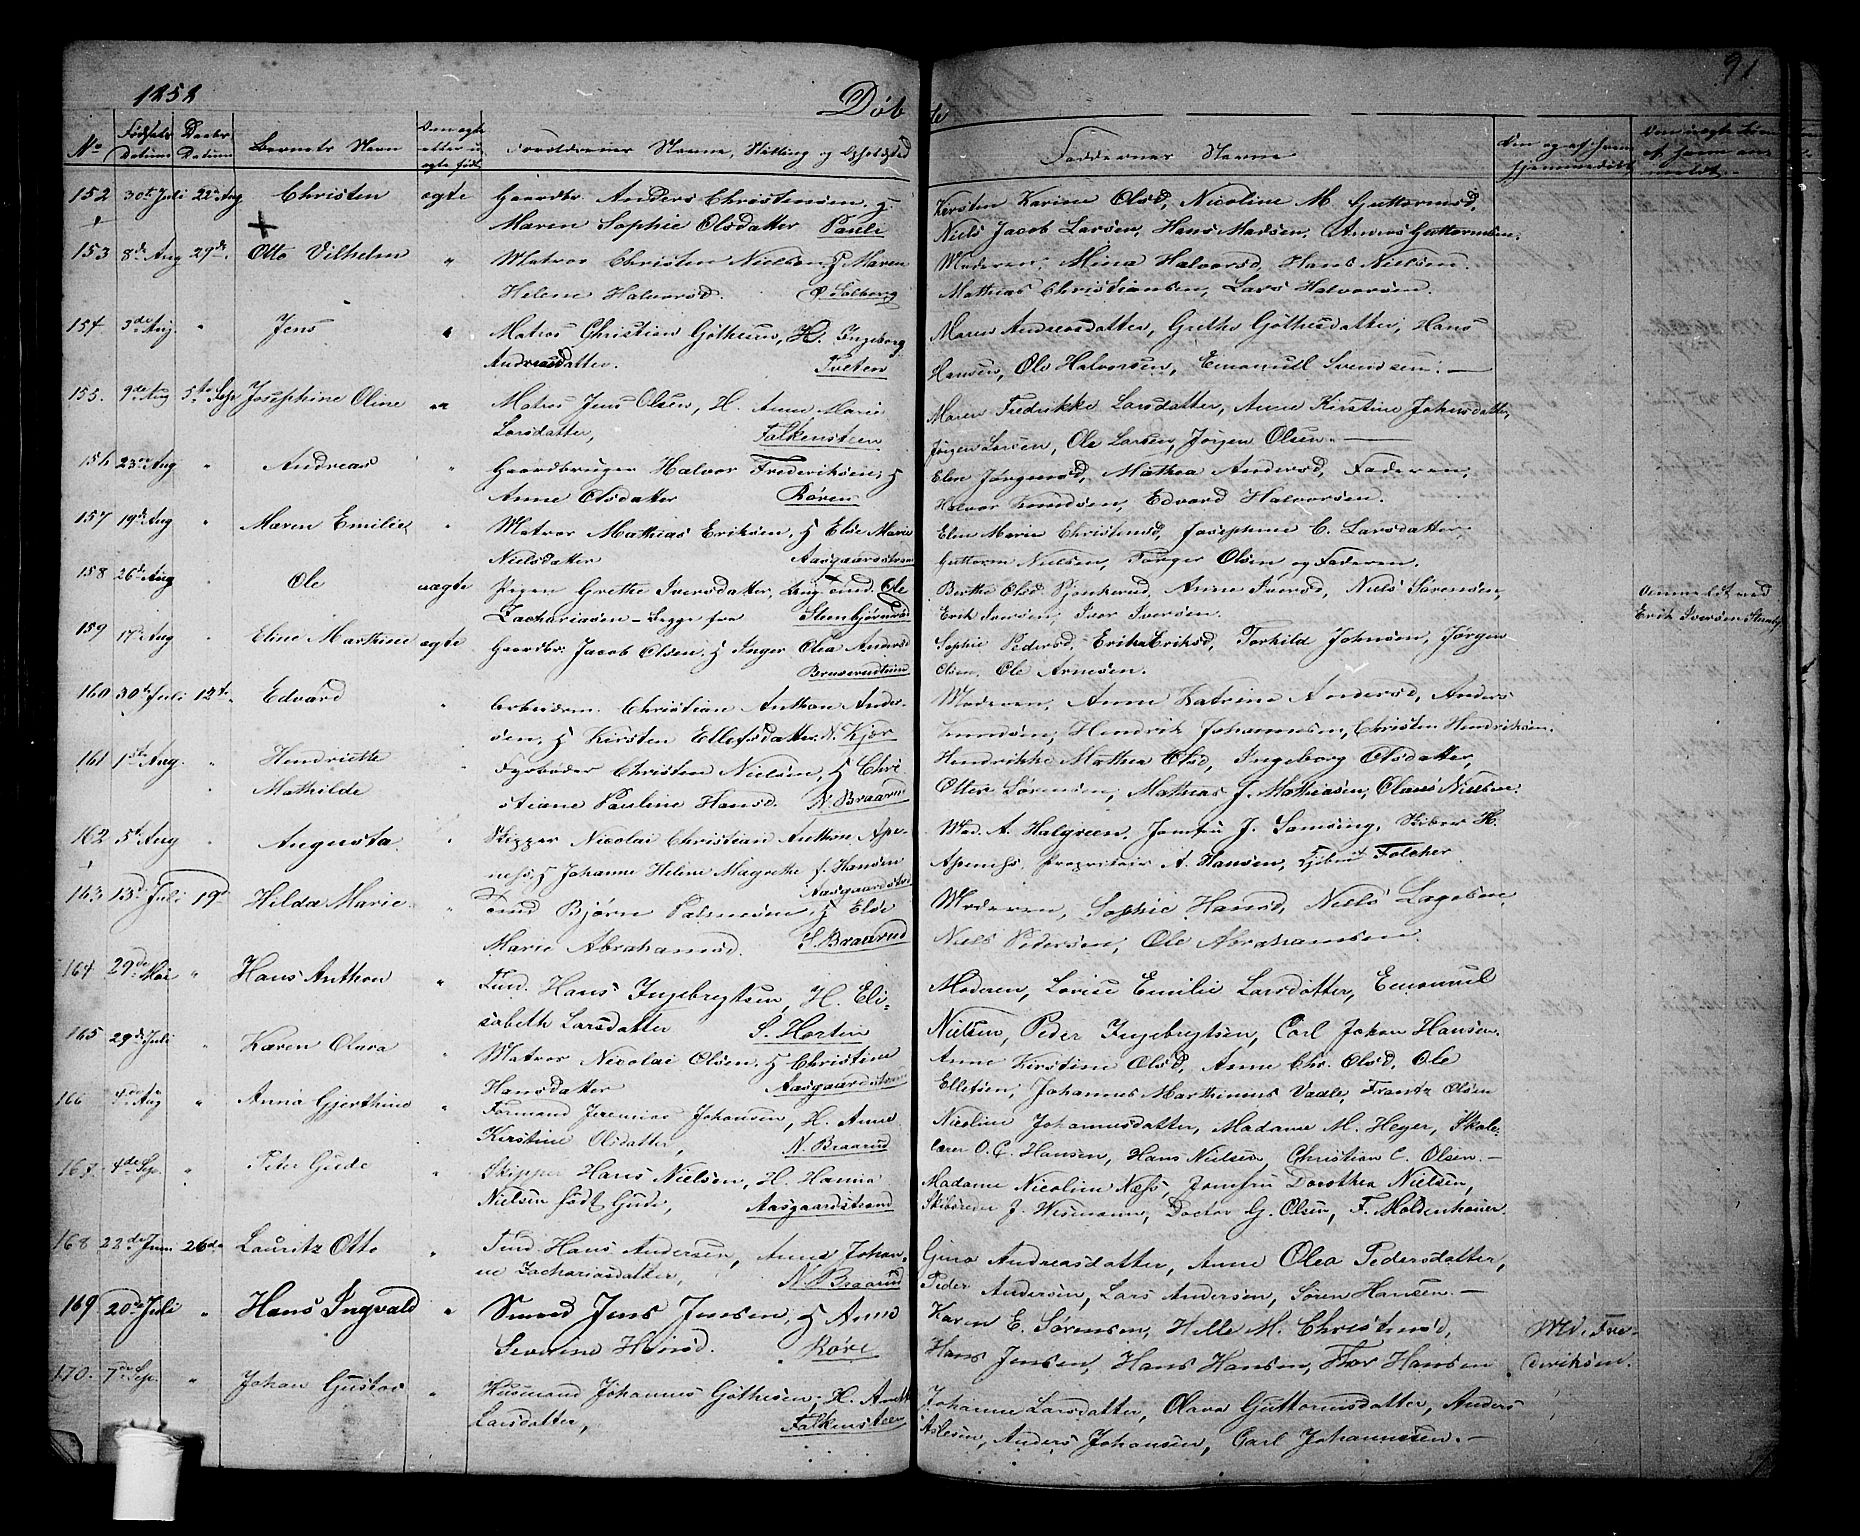 1858 Døbte 91
No Fødsels Datum Daabs Datum Barnets Navn Om ægte eller uægte født Forældrenes Navne, Stilling og Opholdsted Faddernes Navne
152 30te Juli 22de Aug Christen ægte Gaardbr. Anders Christensen, H Kersten Karine Olsd, Nicoline M. Guttormsd,
Maren Sophie Olsdatter Pauli Niels Jacob Larsen, Hans Madsen, Anders Guttormsen.
153 8de Aug 29de Otto Vilhelm " Matros Christen Nielsen, H Maren Moderen, Mina Halvorsd, Hans Nielsen
Helene Halvorsd. Ø. Solberg Mathias Christiansen, Lars Halvorsen.
154 3de Aug. " Jens " Matros Christian Gøthesen, H. Ingeborg Maren Andreasdatter, Grethe Gøthesdatter, Hans
Andreasdatter. Tveten Hansen, Ole Halvorsen, Emanuell Svendsen. —
155. 9de Aug 5te Sept Josephine Oline " Matros Jens Olsen, H. Anne Marie Maren Fredrikke Larsdatter, Anne Kirstine Johnsdatter,
Larsdatter, Falkensteen Jørgen Larsen, Ole Larsen, Jørgen Olsen. —
156 23de Aug " Andreas " Gaardbruger Halvor Frederiksen, H Elen Jørgensd, Mathea Andersd, Faderen,
Anne Olsdatter Røren Halvor Knudsen, Edvard Halvorsen.
157 19de Aug " Maren Emilie " Matros Mathias Eriksen, H Else Marie Elen Marie Christensd, Josephine C. Larsdatter,
Nielsdatter Aasgaardstrand Guttorm Nielsen, Torger Olsen og Faderen.
158 26de Aug Ole uægte Pigen Grethe Iversdatter, Ung. ind. Ole Berthe Olsd, Anne Iversd, Niels Sørensen,
Zachariasen – Begge fra Steenbjørnrød Erik Iversen, Iver Iversen. Anmeldt ved
159 17de Aug " Eline Marthine ægte Gaardbr. Jacob Olsen, H Inger Olea Andersd Sophie Pedersd, Erika Eriksd, Torkild Johnsen, Jørgen Erik Iversen
Bruserudtеie Olsen, Ole Arnesen.
160 30te Juli 12te Edvard " Arbeidsm. Christian Anthon Ander- Moderen, Anne Katrine Andersd, Anders
sen, H Kirsten Ellefsdatter N. Kjær Hendrik Johannesen, Christen Hendriksen.
161 1ste Aug. " Hendriette " Fyrbøder Christen Nielsen, H Chri Hendrikke Mathea Olsd, Ingeborg Olsdatter,
Mathilde stiane Pauline Hansd. N. Braarud Sørensen, Mathias J. Mathiasen, Olaus Nielsen.
162 5te Aug " Augusta " Skipper Nicolai Christian Anthon Ape- Mad. A. Halgreen, Jomfru J. Samsing, Skiber H.
næss, H Johanne Helene Magrethe f. Hansen Apenæss, Proprietair A. Hansen,
Aasgaardstrand
163 13de Juli 19de Hilda Marie " Ind Bjørn Palmesen, H Else Moderen, Sophie Hansd, Niels Lagesen
Marie Abrahamsd. S. Braarud Niels Pedersen, Ole Abrahamsen.
164 29de Mai " Hans Anthon " Ind. Hans Ingebregtsen, H. Eli- Moderen, Lovise Emilie Larsdatter, Emanuel
sabeth Larsdatter S. Horten Nielsen, Peder Ingebregtsen, Carl Johan Hansen.
165 29de Juli " Karen Olava Matros Nicolai Olsen, H Christine Anne Kirstine Olsd, Anne Chr. Olsd, Ole
Hansdatter Aasgaardstrand Ellefsen, Johannes Marthinius Vaale, Frantz Olsen
166 4de Aug " Anna Gjerthine " Formand Jeremias Johansen, H. Anne Nicoline Johannesdatter, Madame M. Heyer, Skole-
Kirstine Olsdatter, N. Braarud lærer O. C. Hansen, Hans Nielsen Christian C. Olsen. —
167. 4de Sep. " Peter Gude " Skipper Hans Nielsen, H. Hanna Madame Nicoline Næss, Jomfru Dorothea Nielsen,
Nielsen født Gude, Aasgaardstrand Skibsreder J. Wismann, Doctor G. Olsen, F. Moldenhauer.
168 22de Juni 26de Lauritz Otto " Ind. Hans Andersen, Anne Johan- Gina Andreasdatter, Anne Olea Pedersdatter,
ne Zachariasdatter, N. Braarud Peder Andersen, Lars Andersen, Søren Hansen. —
169 20de Juli " Hans Ingvald " Smed Jens Jensen, H Anne Karen E. Sørensen, Helle M. Christensd, Md. Fre-
Severine Hansd. Røre Hans Jensen, Hans Hansen, Thor Hansen deriksen.
170. 7de Sep. " Johan Gustav " Husmand Johannes Gøthesen, H. Anett Johanne Larsdatter, Olava Guttormsdatter, Anders
Larsdatter, Falkensteen Aslesen, Anders Johansen, Carl Johannessen. —